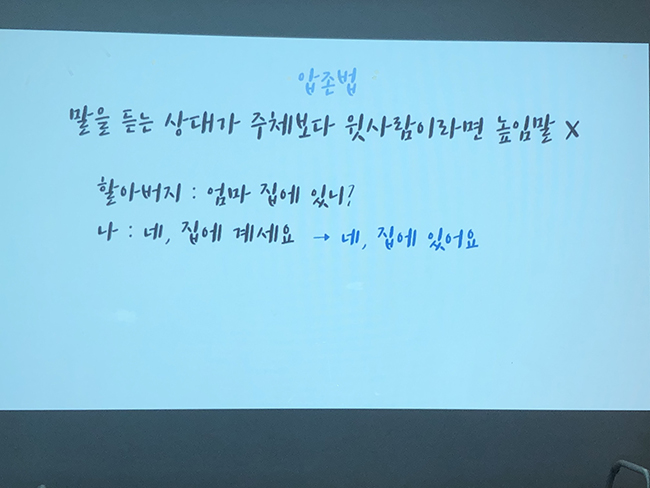 압존법
말을 듣는 상대가 주체보다 윗사람이라면 높임말 X
할아버지 : 엄마 집에 있니?
나 : 네, 집에 계세요 → 네, 집에 있어요